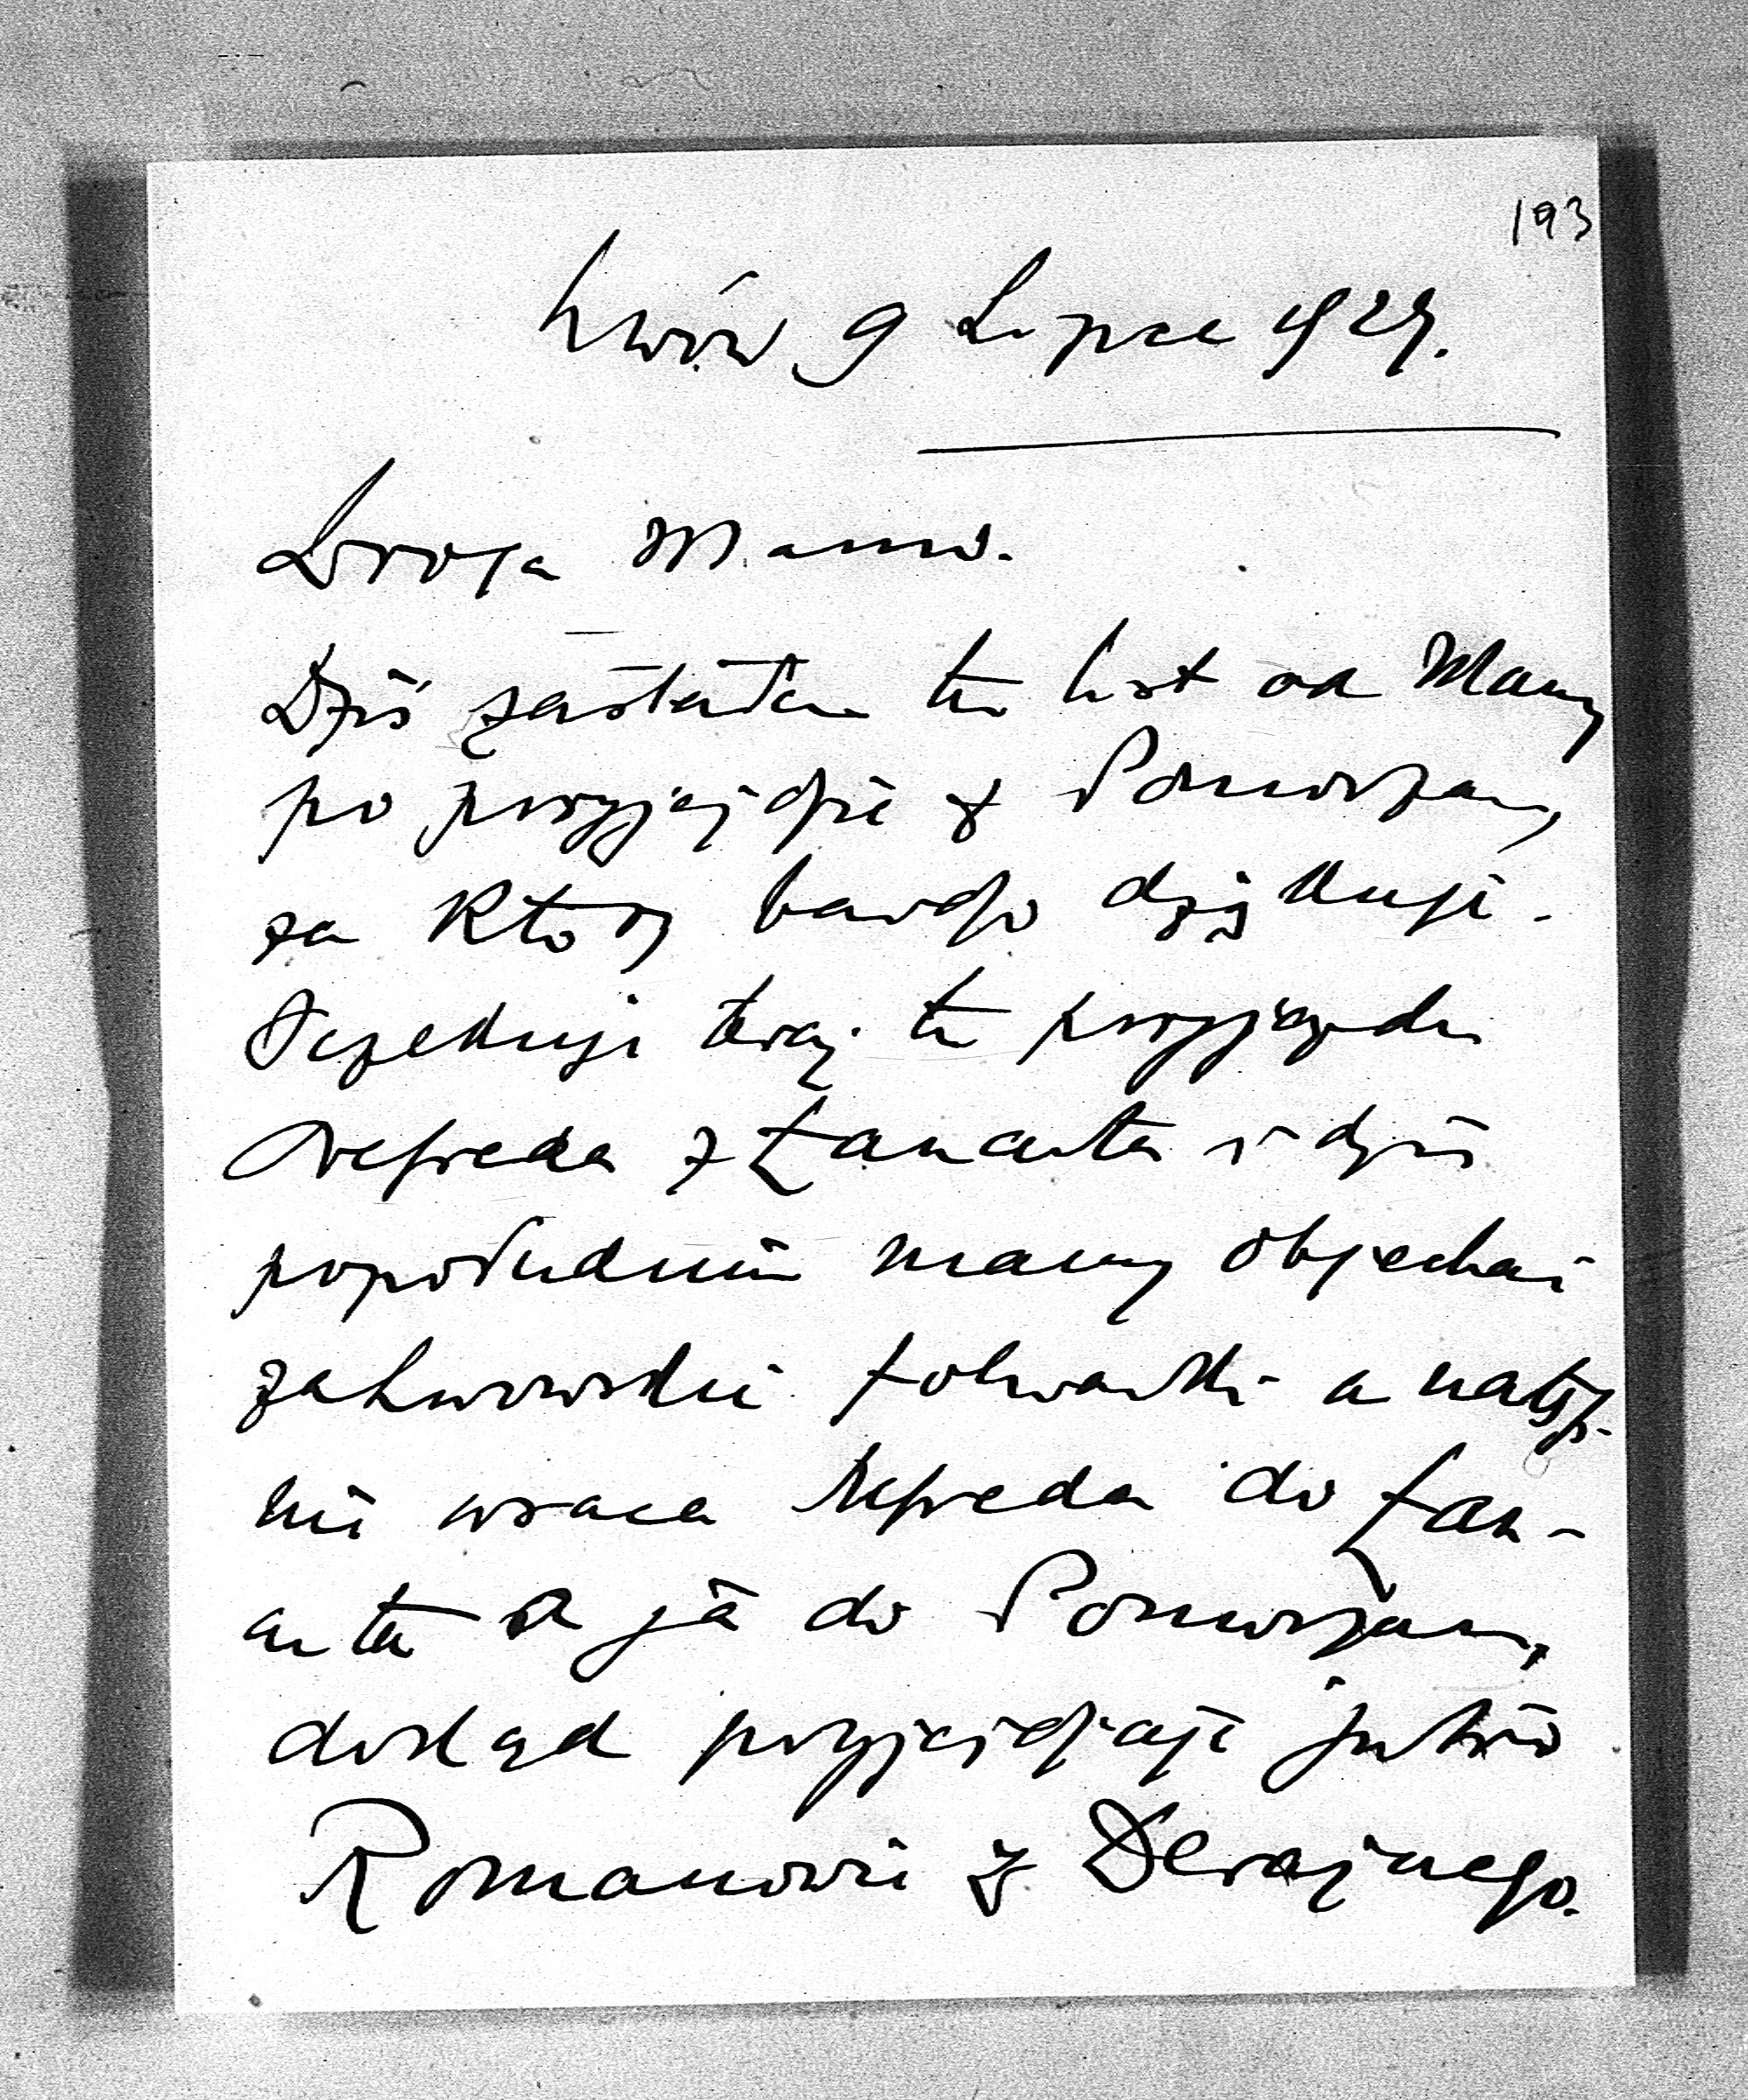 193
Lwów 9 Lipca 1927.
Droga Mamo.
Dziś zastałem tu list od Mamy
po przyjeździe z Pomorzan,
za który bardzo dziękuję.
Oczekuję teraz tu przyjazdu
z Łańcuta i dziś
popołudniu mamy objechać
zalwowskie folwarki a następ-
nie wraca do Łań-
cuta a ja do Pomorzan,
dokąd przyjeżdżają jutro
Romanowie z Derażnego.